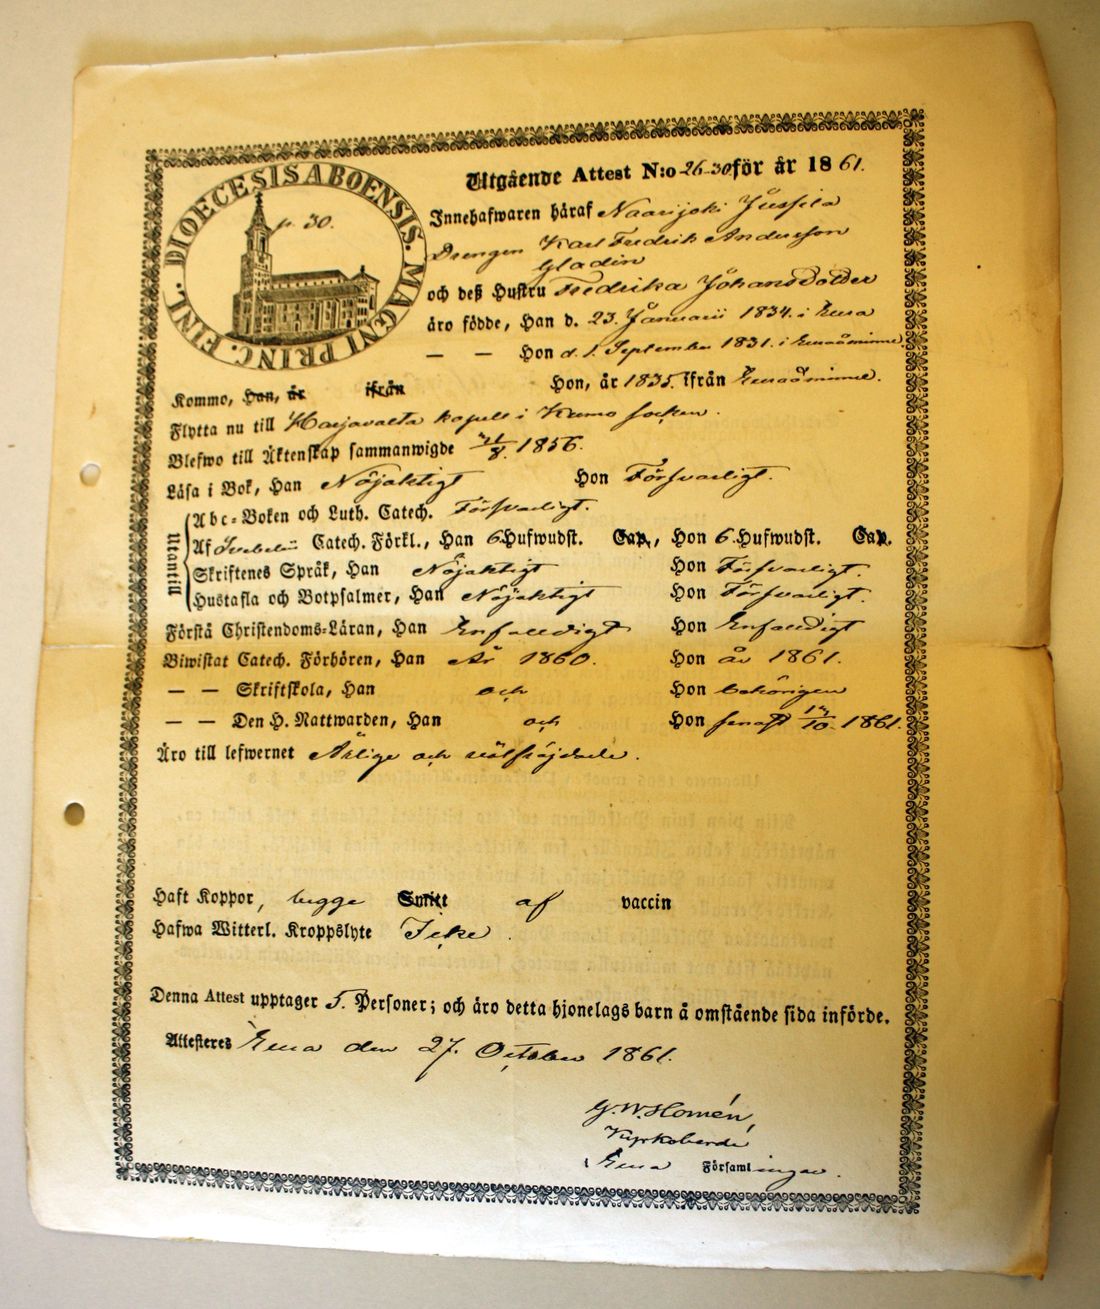 DIOECESIS ABOENSIS. MAGNI PRINC. FINL.
p. 30.
Utgående Attest N:o 26-30 för år 1861.
Innehafwaren häraf Naarijoki Jussila
Drengen Karl Fredrik Andersson
Gladin
och deß Hustru Fredrika Johansdotter
äro födde, Han d. 23. Januarii 1834. i Eura
— — Hon d. 1. September 1831. i Euraåminne.
Kommo, Han, år ifrån Hon, år 1835. ifrån Euraåminne.
Flytta nu till Harjavalta kapell i Kumo socken.
Blefwo till Äktenskap sammanwigde 1856.
Läsa i Bok, Han Nöjaktigt Hon Försvarligt.
Utantill
Abc-Boken och Luth. Catech. Försvarligt.
Af Svebelii Catech. Förkl., Han 6 Hufwudst. Cap., Hon 6. Hufwudst. Cap.
Skriftenes Språk, Han Nöjaktigt Hon Försvarligt.
Hustafla och Botpsalmer, Han Nöjaktigt Hon Försvarligt.
Förstå Christendoms-Läran, Han Enfaldigt Hon Enfaldigt
Biwistat Catech. Förhören, Han År 1860. Hon år 1861.
— — Skriftskola, Han och Hon behörigen
— — Den H. Nattwarden, Han och Hon senast 13/10. 1861.
Äro till lefwernet Ärlige och välfräjdade.
Haft Koppor, begge Smitt af vaccin
Hafwa Witterl. Kroppslyte Icke.
Denna Attest upptager 5. Personer; och äro detta hjonelags barn å omstående sida införde.
Attesteres Eura den 27. October 1861.
G. W. Homén,
Kyrkoherde
Eura Församlingar.